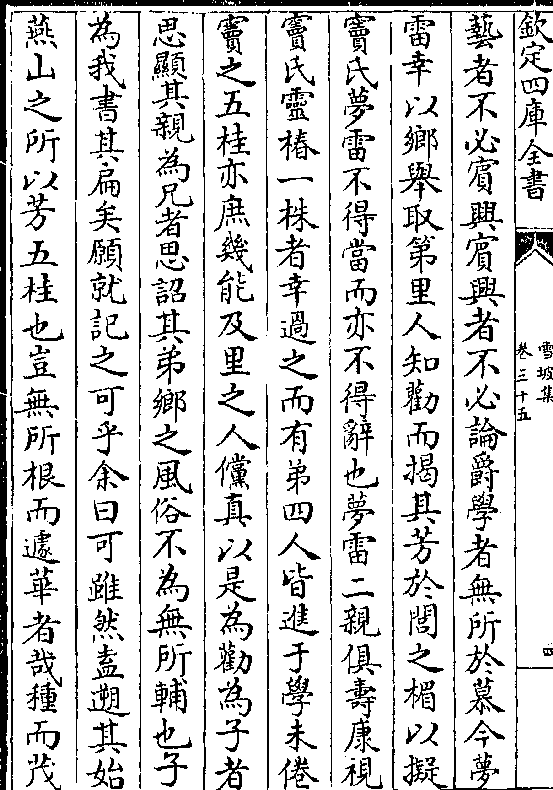 欽定四庫全書
雪坡集
卷三十五
四
藝者不必賔興賔興者不必論爵學者無所於慕今夢
雷幸以鄉舉取第里人知勸而揭其芳於閭之楣以擬
竇氏夢雷不得當而亦不得辭也夢雷二親俱壽康視
竇氏靈椿一株者幸過之而有弟四人皆進于學未倦
竇之五桂亦庶幾能及里之人儻真以是為勸為子者
思顯其親為兄者思詔其弟鄉之風俗不為無所輔也子
為我書其扁矣願就記之可乎余曰可雖然盍遡其始
燕山之所以芳五桂也豈無所根而遽華者哉種而茂